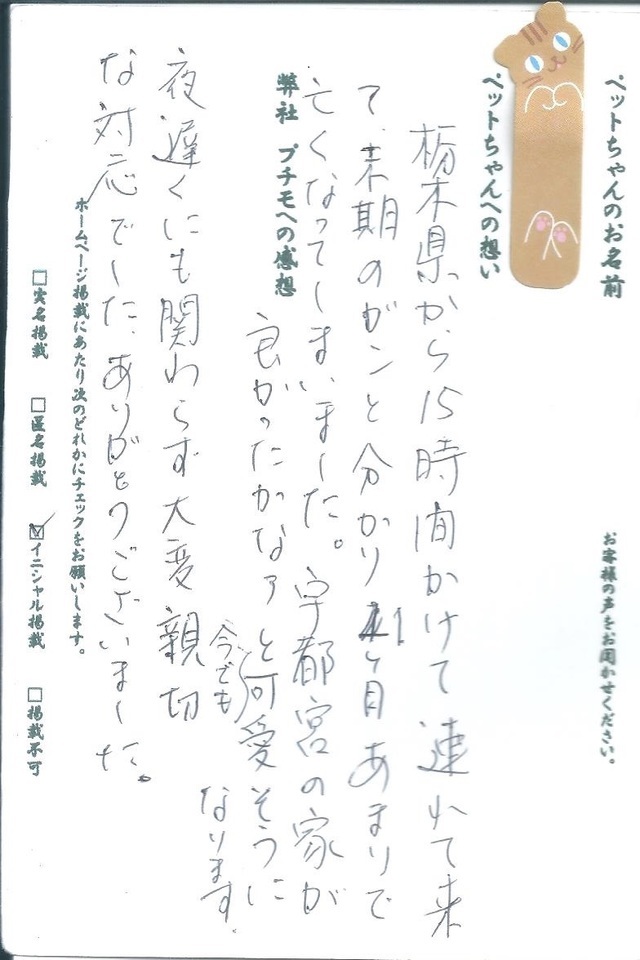 ペットちゃんのお名前
お客様の声をお聞かせください。
ペットちゃんへの想い
栃木県から15時間かけて連れて来
て、末期のガンと分かり1ヶ月あまりで
亡くなってしまいました。宇都宮の家が
良かったかなァと今でも可愛そうに
なります。
弊社 プチモへの感想
夜遅くにも関わらず大変親切
な対応でした。ありがとうございました。
ホームページ掲載にあたり次のどれかにチェックをお願いします。
□実名掲載 □匿名掲載 ☑イニシャル掲載 □掲載不可